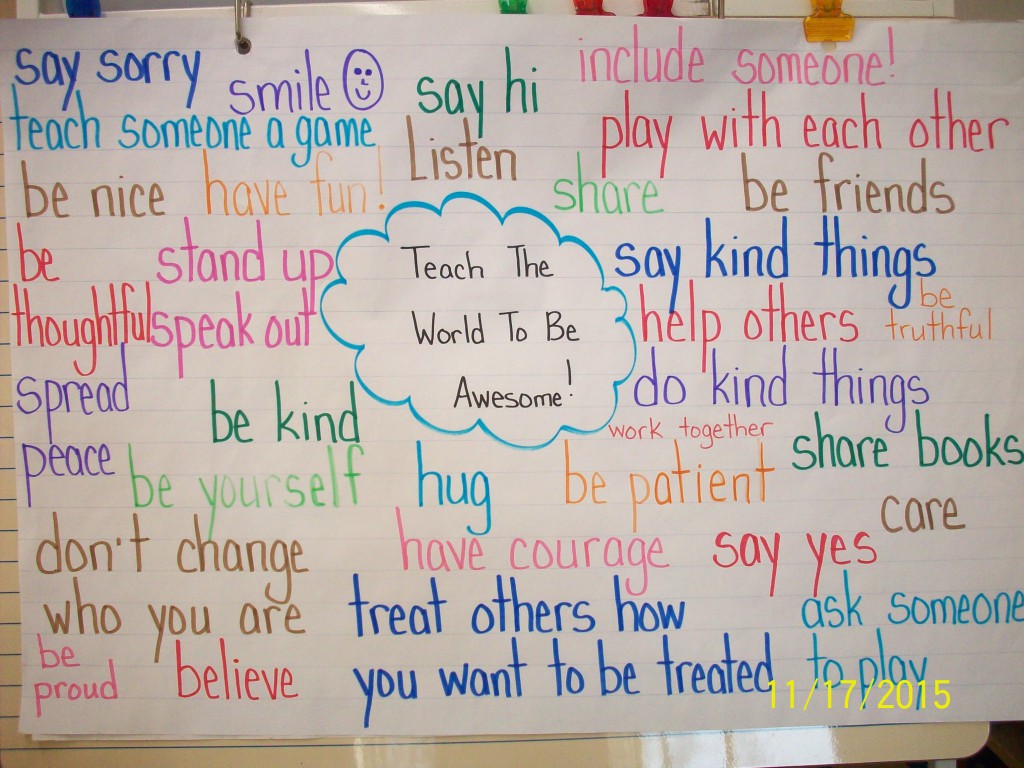 say sorry
smile
say hi
include someone!
teach someone a game
Listen
play with each other
be nice
have fun!
share
be friends
be
thoughtful
stand up
speak out
Teach The
World To Be
Awesome!
say kind things
help others
be
truthful
spread
peace
be kind
do kind things
work together
share books
be yourself
hug
be patient
care
don't change
who you are
have courage
say yes
treat others how
you want to be treated
ask someone
to play
be
proud
believe
11/17/2015